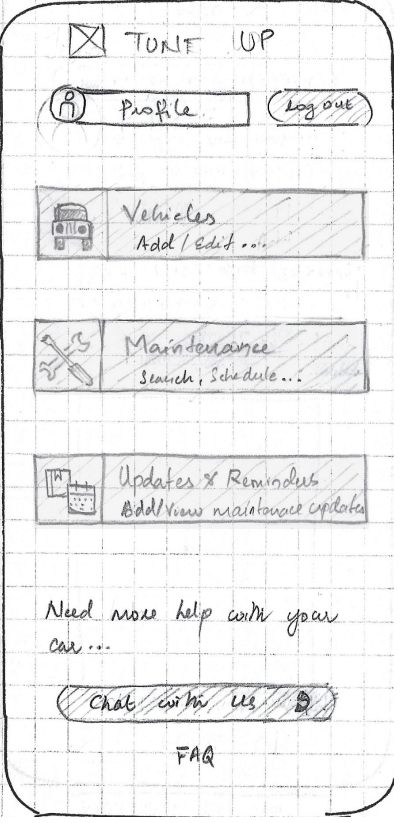 TUNE UP
Profile
Log out
Vehicles
Add / Edit ...
Maintenance
Search, Schedule...
Updates & Reminders
Add/View maintenace updates
Need more help with your
car...
Chat with us
FAQ